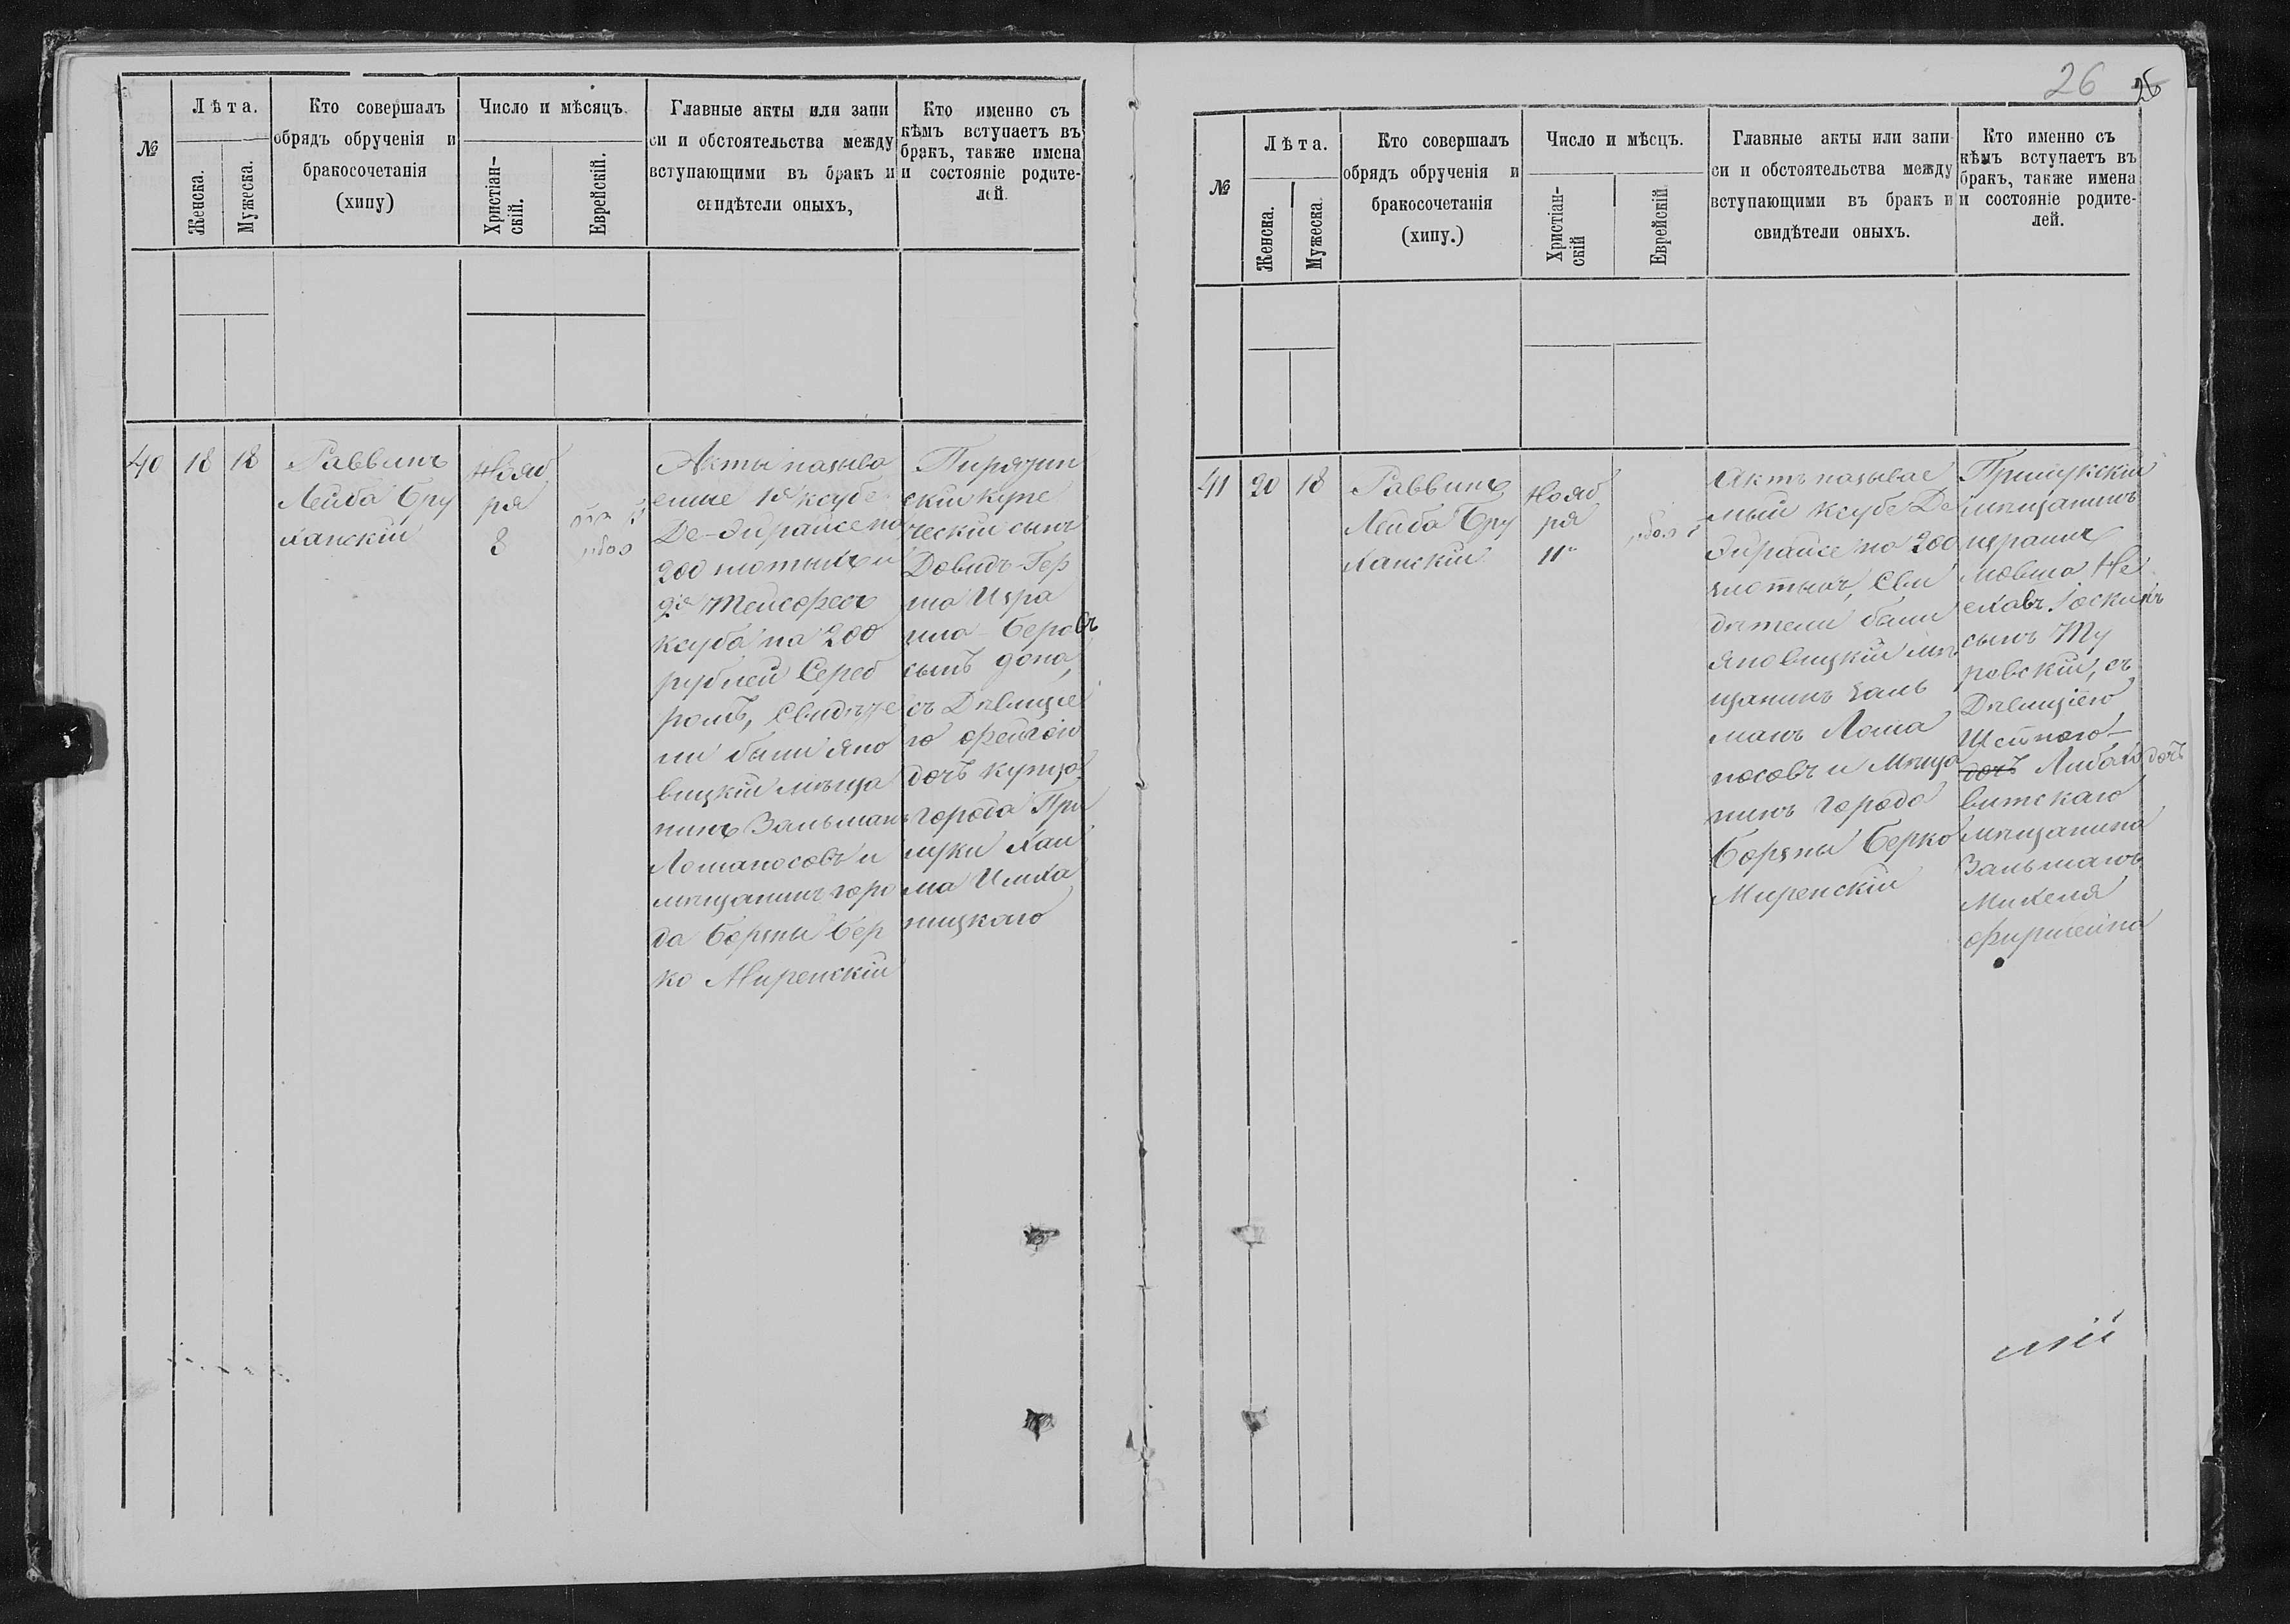 №
Лѣта.
Женска.
Мужеска.
Кто совершалъ
обрядъ обрученія и
бракосочетанія
(хипу)
Число и мѣсяцъ.
Христіан-
скій.
Еврейскій.
Главные акты или запи
си и обстоятельства между
вступающими въ бракъ и
свидѣтели оныхъ,
Кто именно съ
кѣмъ вступаетъ въ
бракъ, также имена
и состояніе родите-
лей.
40
18
18
Раввинъ
Лейба Бру
ханскій
Нояб
ря
8
Акты называ
емые 1й ксубе
Де-Эйрайсе на
200 злотыхъ и
2й Тейсефесъ
ксуба на 200
рублей Сереб
ромъ, Свидѣте
ли были Яно
вицкій мѣща
нинъ Зальманъ
Ломаносовъ и
мѣщанинъ горо
да Борзны Бер
ко Миренскій
Пирятин
скій купе
ческій сынъ
Довидъ-Гер
ша Изра
иля-Беровъ
сынъ
съ Дѣвиціе
ю Фейгою
дочъ купца
города При
луки Хаи
ма
26
26
№
Лѣта.
Женска.
Мужеска.
Кто совершалъ
обрядъ обрученія и
бракосочетанія
(хипу.)
Число и мѣсцъ.
Христіан-
скій
Еврейскій
Главные акты или запи-
си и обстоятельства между
вступающими въ бракъ и
свидѣтели оныхъ.
Кто именно съ
кѣмъ вступаетъ въ
бракъ, также имена
и состояніе родите-
лей.
41
20
18
Раввинъ
Лейба Бру
ханскій
Нояб
ря
11
Актъ называе
мый ксубе Де
Эйрайсе на 200
злотыхъ, Сви
дѣтели были
Яновицкій мѣ
щанинъ Заль
манъ Лома
носовъ и Мѣща
нинъ города
Борзны Берко
Миренскій
Прилукскій
мѣщанинъ
Мовша Не
сынъ Ту
ровскій, съ
Дѣвиціею
дочъ дочъ
витскаго
мѣщанина
Зальманъ
Михеля